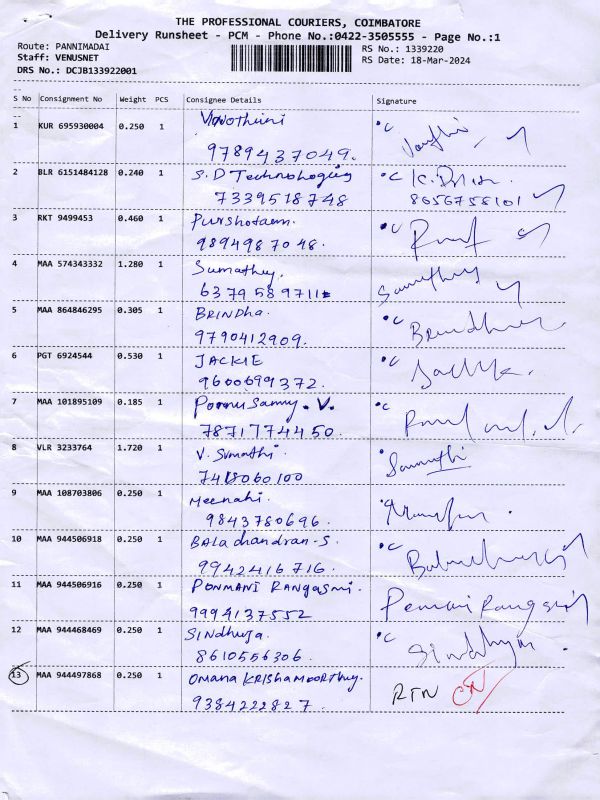 THE PROFESSIONAL COURIERS, COIMBATORE
Delivery Runsheet - PCM - Phone No.:0422-3505555 - Page No.:1
Route: PANNIMADAI
RS No.: 1339220
Staff: VENUSNET
RS Date: 18-Mar-2024
DRS No.: DCJB133922001
S No Consignment No Weight PCS Consignee Details Signature
1 KUR 695930004 0.250 1
9789437049.
2 BLR 6151484128 0.240 1 S.D Technologies
7339518748 8656758101
3 RKT 9499453 0.460 1 Purshotam.
9894987048.
4 MAA 574343332 1.280 1 Sumathy.
6379589711
5 MAA 864846295 0.305 1 BRINDha.
9790412909.
6 PGT 6924544 0.530 1 JACKIE
9600699372.
7 MAA 101895109 0.185 1 Ponnusamy. V.
7871774450.
8 VLR 3233764 1.720 1 V. Sumathi. Sumathi
7418060100
9 MAA 108703806 0.250 1 Meenahi.
9843780696.
10 MAA 944506918 0.250 1 BALa chandran-S.
9942416716.
11 MAA 944506916 0.250 1 PONMANI RANGASMI.
9994137552
12 MAA 944468469 0.250 1 SINdhuja.
8610556306.
13 MAA 944497868 0.250 1 OMANA KRISHAMOORTHY. RTN
9384222827.